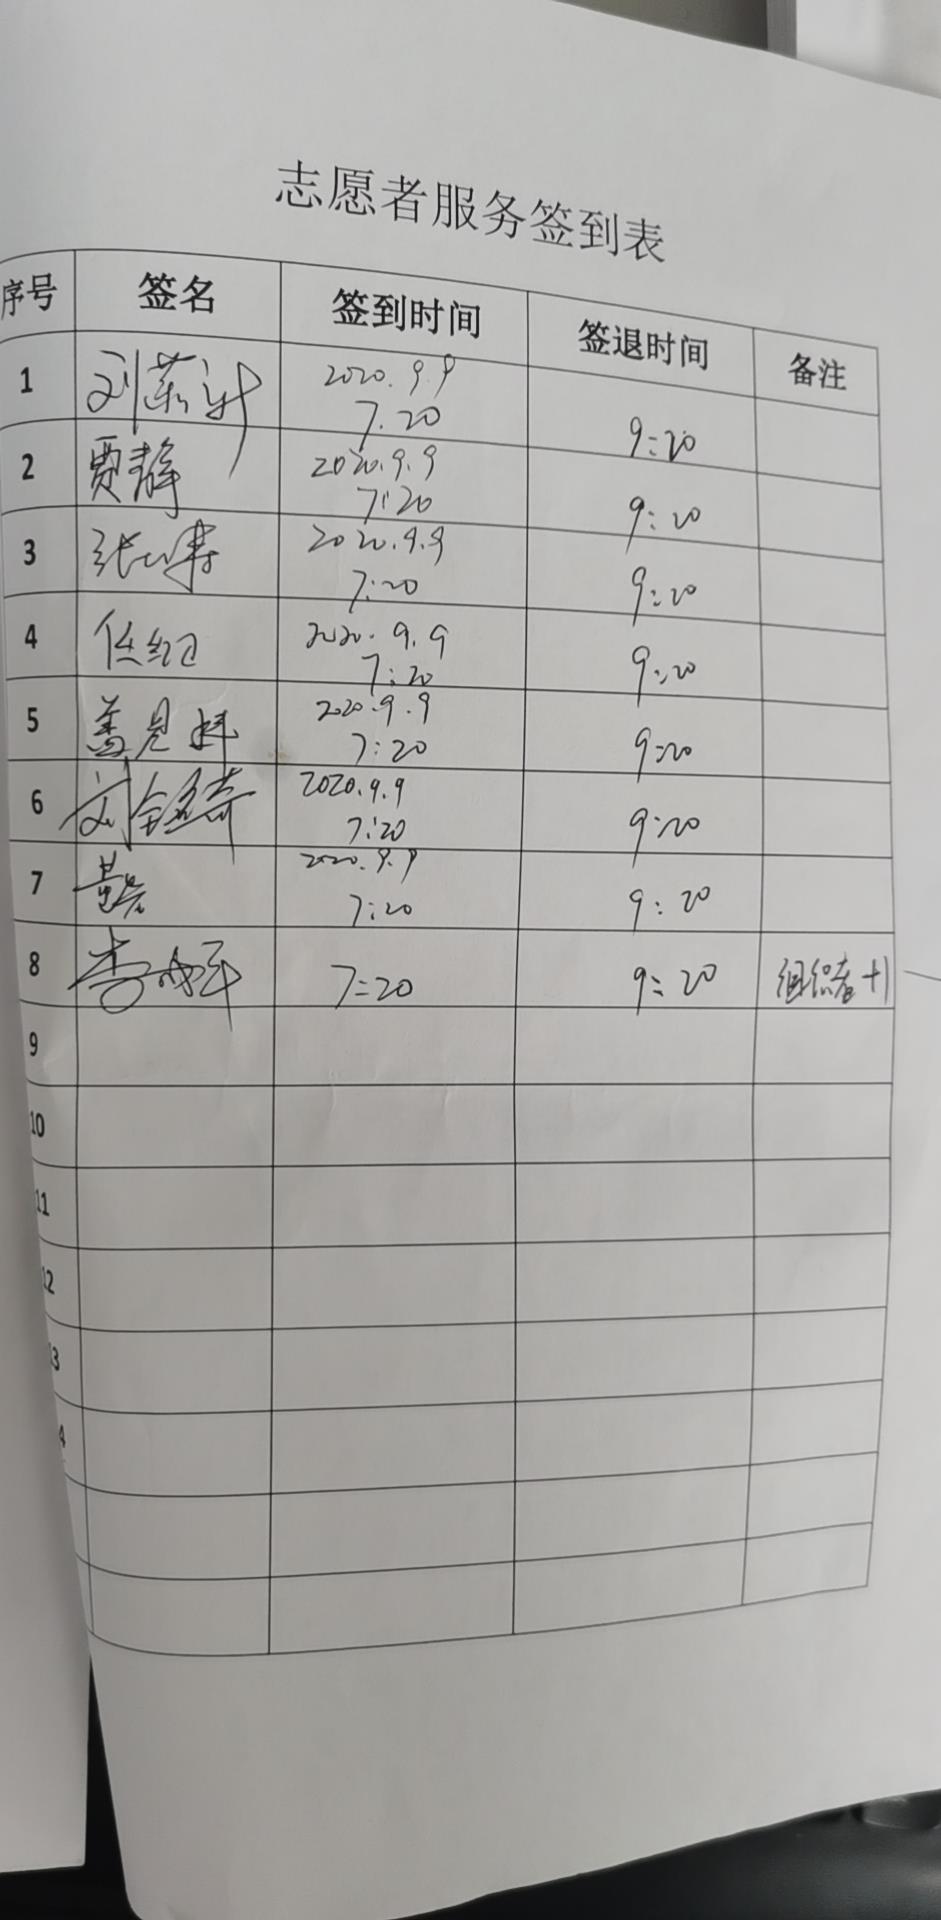 志愿者服务签到表
序号 签名 签到时间 签退时间 备注
1 2020.9.9
7.20 9:20
2 贾静 2020.9.9
7:20 9:20
3 2020.9.9
7:20 9:20
4 任红卫 2020.9.9
7:20 9:20
5 2020.9.9
7:20 9:20
6 2020.9.9
7:20 9:20
7 2020.9.9
7:20 9:20
8 7:20 9:20 组织者+1
9
10
11
12
13